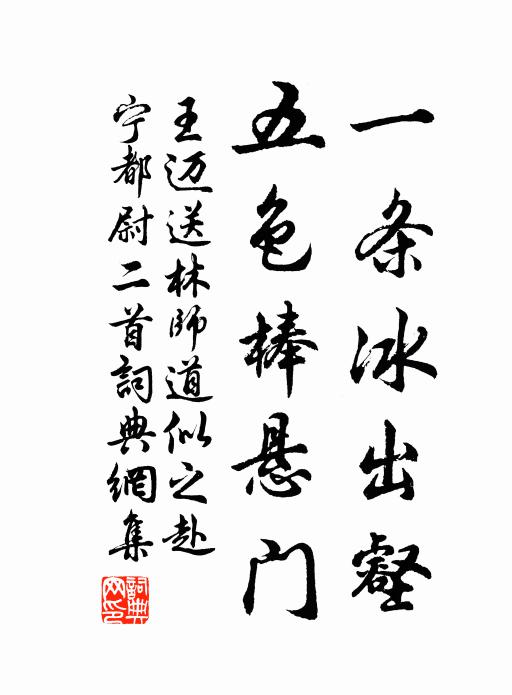 一条冰出壑
五色棒悬门
王迈送林師道似之赴
宁都尉二首詞典網集